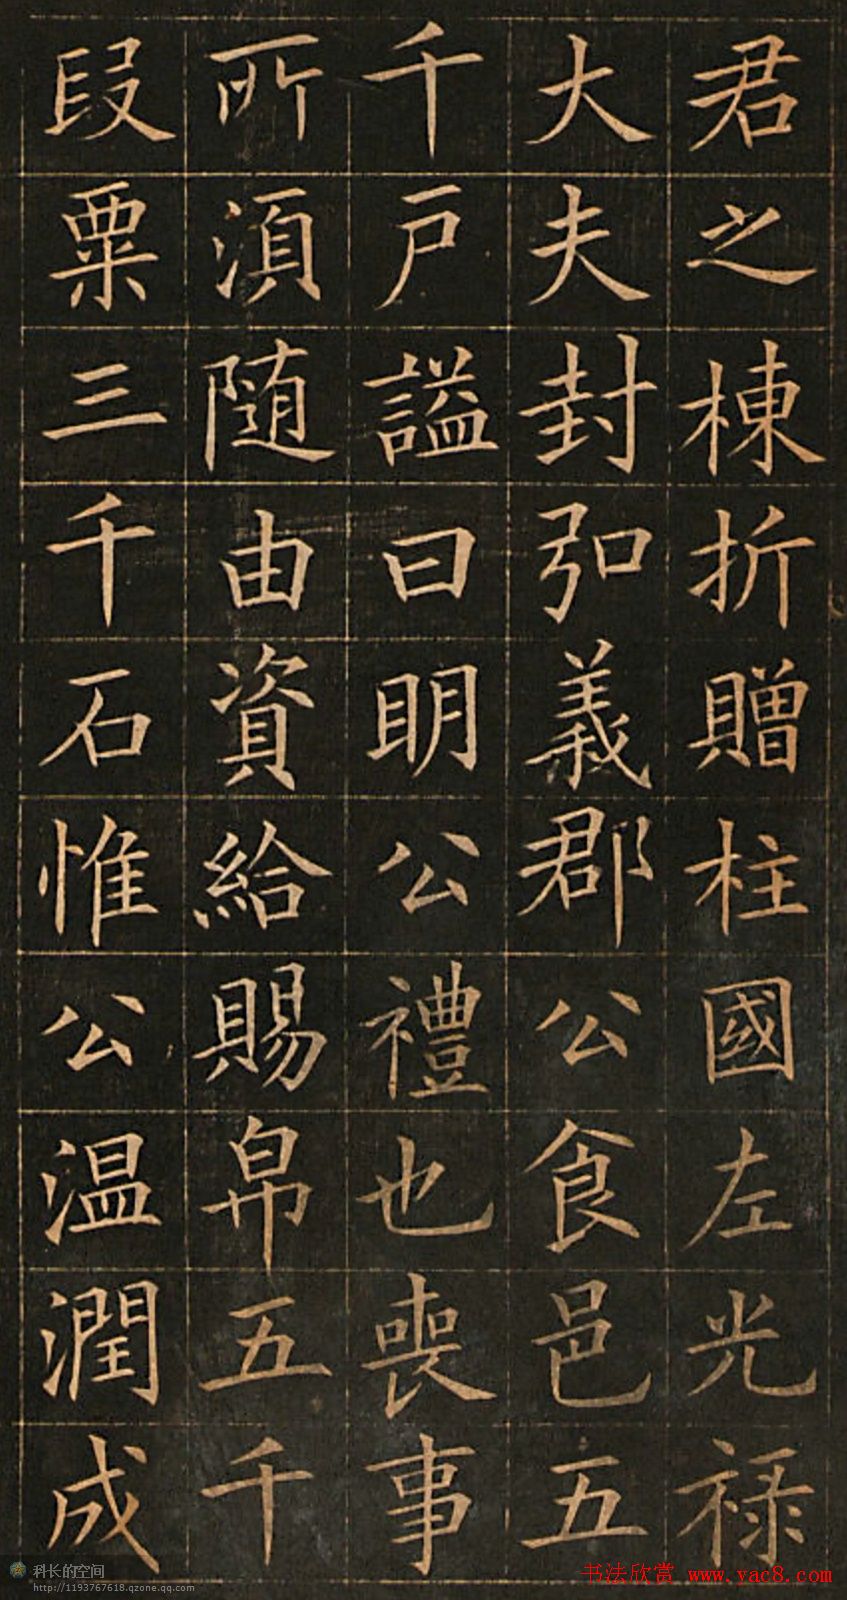 君之棟折贈柱國左光禄
大夫封弘義郡公食邑五
千戶謚曰明公禮也喪事
所湏随由資給賜帛五千
段粟三千石惟公温潤成
科长的空间
http://1193767618.qzone.qq.com
书法欣赏 www.yac8.com